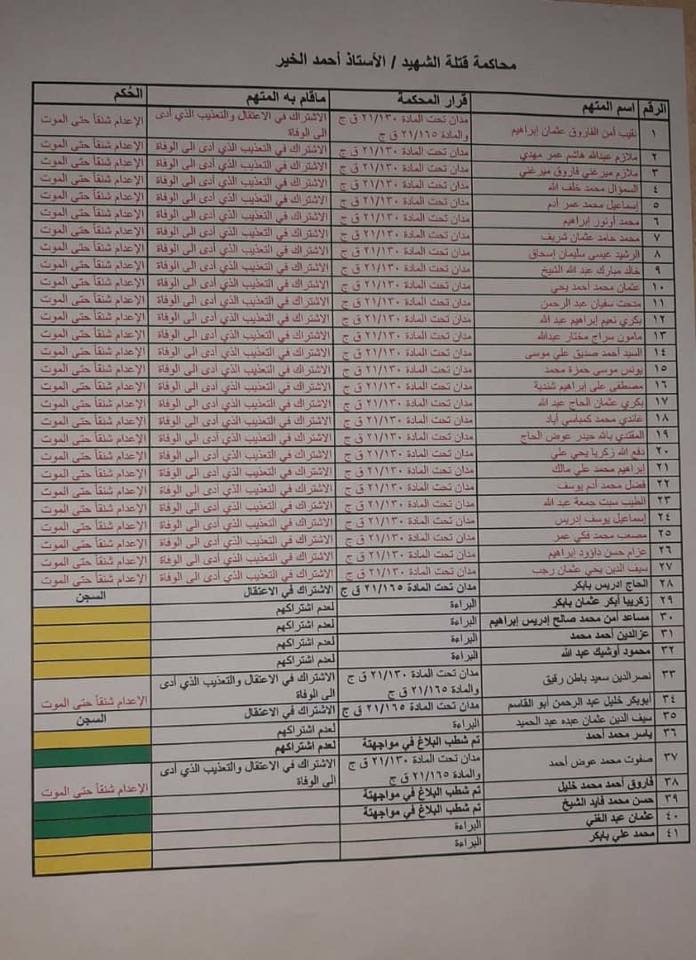 محاكمة قتلة الشهيد / الأستاذ أحمد الخير
الرقم اسم المتهم قرار المحكمة ماقام به المتهم الحُكم
١ نقيب أمن الفاروق عثمان إبراهيم مدان تحت المادة ٢١/١٣٠ ق ج والمادة ٢١/١٦٥ ق ج الاشتراك في الاعتقال والتعذيب الذي أدى الى الوفاة الإعدام شنقاً حتى الموت
٢ ملازم عبدالله هاشم عمر مهدي مدان تحت المادة ٢١/١٣٠ ق ج الاشتراك في التعذيب الذي أدى الى الوفاة الإعدام شنقاً حتى الموت
٣ ملازم ميرغني فاروق ميرغني مدان تحت المادة ٢١/١٣٠ ق ج الاشتراك في التعذيب الذي أدى الى الوفاة الإعدام شنقاً حتى الموت
٤ السؤال محمد خلف الله مدان تحت المادة ٢١/١٣٠ ق ج الاشتراك في التعذيب الذي أدى الى الوفاة الإعدام شنقاً حتى الموت
٥ إسماعيل محمد عمر آدم مدان تحت المادة ٢١/١٣٠ ق ج الاشتراك في التعذيب الذي أدى الى الوفاة الإعدام شنقاً حتى الموت
٦ محمد أونور إبراهيم مدان تحت المادة ٢١/١٣٠ ق ج الاشتراك في التعذيب الذي أدى الى الوفاة الإعدام شنقاً حتى الموت
٧ محمد حامد عثمان شريف مدان تحت المادة ٢١/١٣٠ ق ج الاشتراك في التعذيب الذي أدى الى الوفاة الإعدام شنقاً حتى الموت
٨ الرشيد عيسى سليمان إسحاق مدان تحت المادة ٢١/١٣٠ ق ج الاشتراك في التعذيب الذي أدى الى الوفاة الإعدام شنقاً حتى الموت
٩ خالد مبارك عبد الله الشيخ مدان تحت المادة ٢١/١٣٠ ق ج الاشتراك في التعذيب الذي أدى الى الوفاة الإعدام شنقاً حتى الموت
١٠ عثمان محمد أحمد يحي مدان تحت المادة ٢١/١٣٠ ق ج الاشتراك في التعذيب الذي أدى الى الوفاة الإعدام شنقاً حتى الموت
١١ مدحت سفيان عبد الرحمن مدان تحت المادة ٢١/١٣٠ ق ج الاشتراك في التعذيب الذي أدى الى الوفاة الإعدام شنقاً حتى الموت
١٢ بكري نعيم إبراهيم عبد الله مدان تحت المادة ٢١/١٣٠ ق ج الاشتراك في التعذيب الذي أدى الى الوفاة الإعدام شنقاً حتى الموت
١٣ مأمون سراج مختار عبدالله مدان تحت المادة ٢١/١٣٠ ق ج الاشتراك في التعذيب الذي أدى الى الوفاة الإعدام شنقاً حتى الموت
١٤ السيد أحمد صديق علي موسى مدان تحت المادة ٢١/١٣٠ ق ج الاشتراك في التعذيب الذي أدى الى الوفاة الإعدام شنقاً حتى الموت
١٥ يونس موسى حمزة محمد مدان تحت المادة ٢١/١٣٠ ق ج الاشتراك في التعذيب الذي أدى الى الوفاة الإعدام شنقاً حتى الموت
١٦ مصطفى على إبراهيم شندية مدان تحت المادة ٢١/١٣٠ ق ج الاشتراك في التعذيب الذي أدى الى الوفاة الإعدام شنقاً حتى الموت
١٧ بكري عثمان الحاج عبد الله مدان تحت المادة ٢١/١٣٠ ق ج الاشتراك في التعذيب الذي أدى الى الوفاة الإعدام شنقاً حتى الموت
١٨ غاندي محمد كمباسي آباد مدان تحت المادة ٢١/١٣٠ ق ج الاشتراك في التعذيب الذي أدى الى الوفاة الإعدام شنقاً حتى الموت
١٩ المقتدي بالله حيدر عوض الحاج مدان تحت المادة ٢١/١٣٠ ق ج الاشتراك في التعذيب الذي أدى الى الوفاة الإعدام شنقاً حتى الموت
٢٠ دفع الله زكريا يحي علي مدان تحت المادة ٢١/١٣٠ ق ج الاشتراك في التعذيب الذي أدى الى الوفاة الإعدام شنقاً حتى الموت
٢١ إبراهيم محمد علي مالك مدان تحت المادة ٢١/١٣٠ ق ج الاشتراك في التعذيب الذي أدى الى الوفاة الإعدام شنقاً حتى الموت
٢٢ فضل محمد آدم يوسف مدان تحت المادة ٢١/١٣٠ ق ج الاشتراك في التعذيب الذي أدى الى الوفاة الإعدام شنقاً حتى الموت
٢٣ الطيب سبت جمعة عبد الله مدان تحت المادة ٢١/١٣٠ ق ج الاشتراك في التعذيب الذي أدى الى الوفاة الإعدام شنقاً حتى الموت
٢٤ إسماعيل يوسف إدريس مدان تحت المادة ٢١/١٣٠ ق ج الاشتراك في التعذيب الذي أدى الى الوفاة الإعدام شنقاً حتى الموت
٢٥ مصعب محمد فكي عمر مدان تحت المادة ٢١/١٣٠ ق ج الاشتراك في التعذيب الذي أدى الى الوفاة الإعدام شنقاً حتى الموت
٢٦ عزام حسن داؤود إبراهيم مدان تحت المادة ٢١/١٣٠ ق ج الاشتراك في التعذيب الذي أدى الى الوفاة الإعدام شنقاً حتى الموت
٢٧ سيف الدين يحي عثمان رجب مدان تحت المادة ٢١/١٣٠ ق ج الاشتراك في التعذيب الذي أدى الى الوفاة الإعدام شنقاً حتى الموت
٢٨ الحاج ادريس بابكر مدان تحت المادة ٢١/١٦٥ ق ج الاشتراك في الاعتقال السجن
٢٩ زكرييا أبكر عثمان بابكر البراءة لعدم اشتراكهم
٣٠ مساعد أمن محمد صالح إدريس إبراهيم البراءة لعدم اشتراكهم
٣١ عزالدين أحمد محمد البراءة لعدم اشتراكهم
٣٢ محمود أوشيك عبد الله البراءة لعدم اشتراكهم
٣٣ نصرالدين سعيد باطن رقيق مدان تحت المادة ٢١/١٣٠ ق ج والمادة ٢١/١٦٥ ق ج الاشتراك في الاعتقال والتعذيب الذي أدى الى الوفاة الإعدام شنقاً حتى الموت
٣٤ ابوبكر خليل عبد الرحمن أبو القاسم مدان تحت المادة ٢١/١٦٥ ق ج الاشتراك في الاعتقال السجن
٣٥ سيف الدين عثمان عبده عبد الحميد البراءة لعدم اشتراكهم
٣٦ ياسر محمد أحمد تم شطب البلاغ في مواجهتة لعدم اشتراكهم
٣٧ صفوت محمد عوض أحمد مدان تحت المادة ٢١/١٣٠ ق ج والمادة ٢١/١٦٥ ق ج الاشتراك في الاعتقال والتعذيب الذي أدى الى الوفاة الإعدام شنقاً حتى الموت
٣٨ فاروق أحمد محمد خليل تم شطب البلاغ في مواجهتة
٣٩ حسن محمد فايد الشيخ تم شطب البلاغ في مواجهتة
٤٠ عثمان عبد الغني البراءة
٤١ محمد علي بابكر البراءة